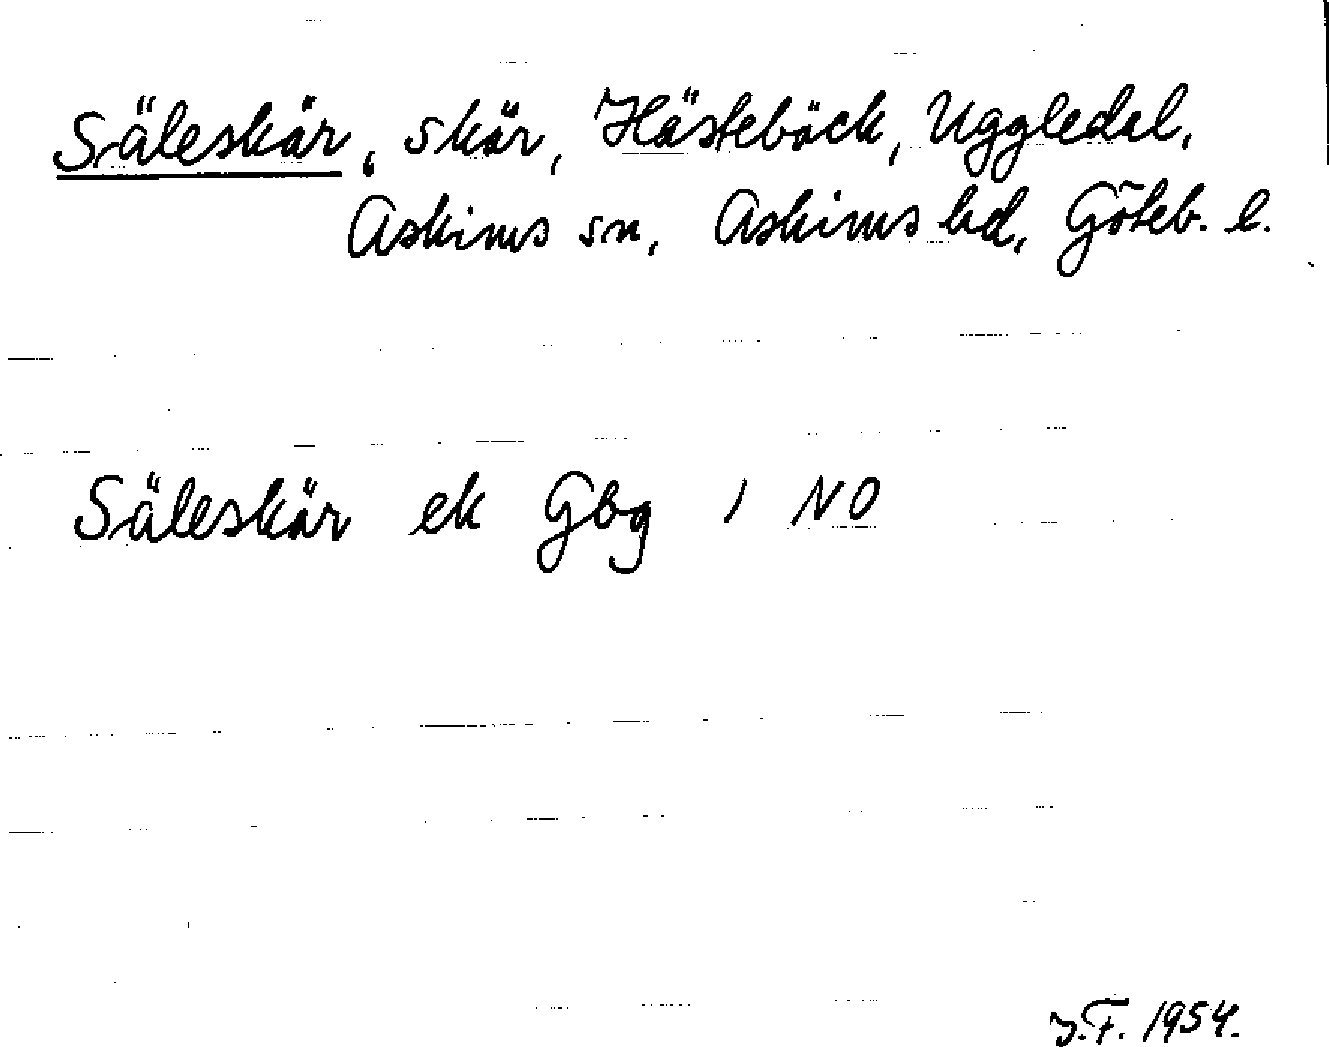 Säleskär, skär, Hästebäck, Uggledal,
Askims sn, Askims hd, Göteb. l.
Säleskär ek Gbg 1 NO
J.F. 1954.